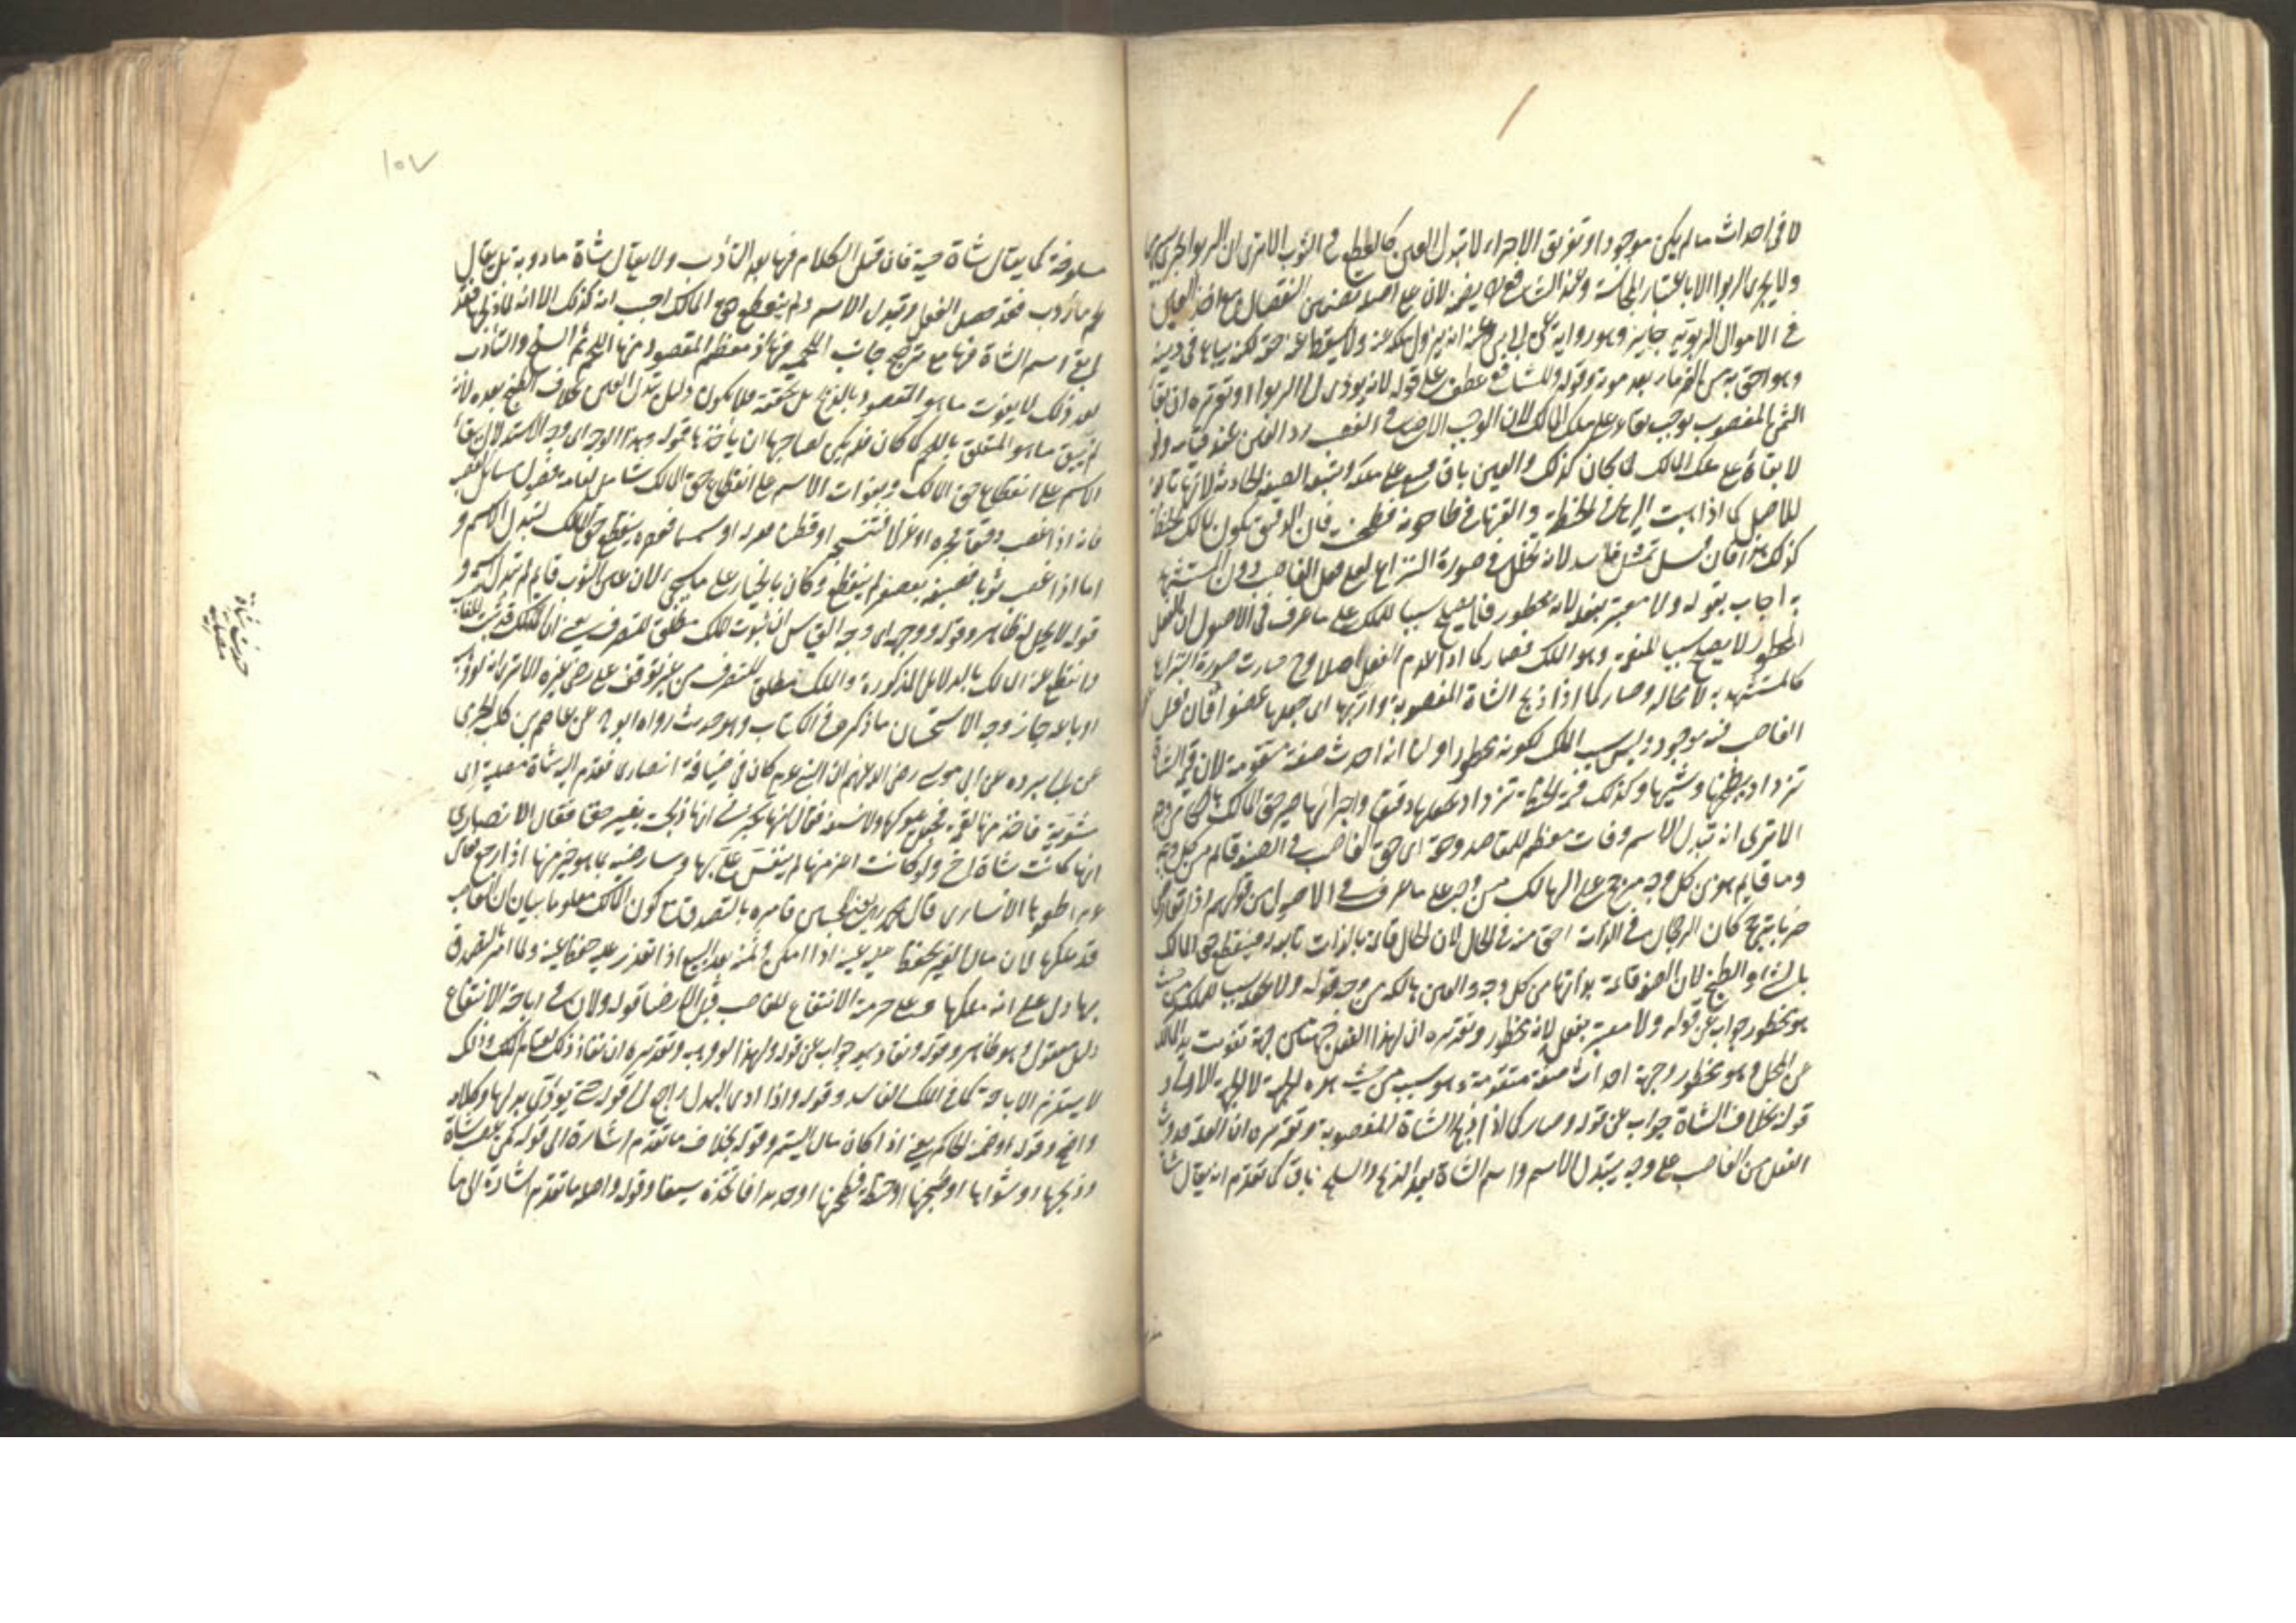 لا في احداث ما لم يكن موجودا وتفريق الاجزاء لا تبدل العين كالقطع في الثوب الا ترى ان الربوا يجري
ولا يجري الربوا الا باعتبار المجانسة وعند الشافعي رح يضمنه لان على اصله تضمين النقصان مع اخذ العين
في الاموال الربوية جايز وهو رواية عن ابي يوسف انه يزول ملكه عنه ولا يسقط عنه حقه لكنه يباع في دينه
وهو احق به من الغرماء بعد موته وقوله وللشافعي عطف على قوله لانه يؤدي الى الربوا وتقريره ان بقاء
العين المغصوب يوجب بقاءه على ملك المالك لان الواجب الاصلي في الغصب رد العين عند قيامه ولو
لا بقاؤه على ملك المالك لما كان كذلك والعين باق فيبقى على ملكه وتتبعه الصنعة الحادثة لانها تابعة
للاصل كما اذا هبت الريح في الحنطة والقتها في طاحونة فطحنت فان الدقيق يكون لمالك الحنطة
كذلك هذا فان قيل تمثيل فاسد لانه تخلل في صورة النزاع فعل الغاصب دون المستشهد
به اجاب بقوله ولا معتبر بفعله لانه محظور فلا يصلح سببا للملك على ما عرف في الاصول ان الفعل
المحظور لا يصلح سببا للنعمة وهو الملك فصار كما اذا انعدم الفعل اصلا وح صارت صورة النزاع
كالمستشهد به لا محالة وصار كما اذا ذبح الشاة المغصوبة واربها اي جعلها عضوا فان فعل
الغاصب فيه موجود وليس بسبب الملك لكونه محظورا ولنا انه احدث صنعة متقومة لان قيمة الشاة
تزداد بطبخها وشيها وكذلك قيمة الحنطة تزداد بجعلها دقيقا واحداثها صير حق المالك هالكا من وجه
الا ترى انه تبدل الاسم وفات معظم المقاصد وحقه اي حق الغاصب في الصنعة قائم من كل وجه
وما قايم من كل وجه مرجح على الهالك من وجه على ما عرف في الاصول من قولهم اذا تعارض
ضربا ترجيح كان الرجحان في الذات احق منه في الحال لان الحال قائمة بالذات تابعة له فينقطع حق المالك
بالشي والطبخ لان الصنعة قائمة بذاتها من كل وجه والعين هالكة من وجه قوله ولا نجعله سببا للملك من حيث
هو محظور جواب عن قوله ولا معتبر بفعله لانه محظور وتقريره ان لهذا الفعل جهتين جهة تفويت يد المالك
عن المحل وهو محظور وجهة احداث صنعة متقومة وهو سبب من حيث هذه الجهة لا الجهة الاولى و
قوله بخلاف الشاة جواب عن قوله وصار كما اذا ذبح الشاة المغصوبة وتقريره ان العلة حدوث
الفعل من الغاصب على وجه يتبدل الاسم واسم الشاة بعد الذبح والسلخ باق كما تقدم انه يقال شاة
١٠٧
مسلوخة كما يقال شاة حية فان قيل الكلام فيها بعد التأريب ولا يقال شاة مأروبة بل يقال
لحم مأروب فقد حصل الفعل وتبدل الاسم ولم ينقطع حق المالك اجيب انه كذلك الا انه لما ذبحها فقد
ابقى اسم الشاة فيها مع ترجيح جانب اللحمية فيها اذ معظم المقصود منها اللحم ثم السلخ والتأريب
بعد ذلك لا يفوت ما هو المقصود بالذبح بل يحققه فلا يكون دليل تبدل العين بخلاف الطبخ بعده لانه
لم يبق ما هو المتعلق باللحم كما كان فلم يكن لصاحبها ان يأخذها قوله وهذا الوجه اي وجه الاستدلال ببقاء
الاسم على انقطاع حق المالك وبفوات الاسم على انقطاع حق المالك شامل لعامة فصول مسائل الغصب
فانه اذا غصب دقيقا فخبزه او غزلا فنسجه او قطنا فغزله او سمسما فعصره ينقطع حق المالك لتبدل الاسم و
اما اذا غصب ثوبا فصبغه بعصفر لم ينقطع وكان بالخيار على ما يجيء لان عين الثوب قايم لم يتبدل اسمه و
قوله لا يحل له ظاهر وقوله ووجهه اي وجه القياس ان ثبوت الملك مطلق للتصرف يعني ان الملك قد ثبت للغاصب
وانقطع عنه المالك بالدلائل المذكورة والملك مطلق للتصرف من غير توقف على رضى غيره الا ترى انه لو وهبه
او باعه جاز وجه الاستحسان ما ذكره في الكتاب وهو حديث رواه ابو ح عن عاصم بن كليب الجرمي
عن ابي بردة عن ابي موسى رضي الله عنهم ان النبي ع م كان في ضيافة انصاري فقدم اليه شاة مصلية اي
مشوية فاخذ منها لقمة فجعل يلوكها ولا تسيغه فقال انها تخبرني انها ذبحت بغير حق فقال الانصاري
انها كانت شاة اخي ولو كانت اعز منها لم ينفس علي بها وسارضيه بما هو خير منها اذا رجع فقال
ع م اطعموها الاسارى قال محمد رح يعني المحبسين فامره بالتصدق مع كون المالك معلوما بيان ان الغاصب
قد ملكها لان مال الغير يحفظ عليه عينه اذا امكن وثمنه بعد البيع اذا تعذر عليه حفظ عينه ولما امر بالتصدق
بها دل على انه ملكها وعلى حرمة الانتفاع للغاصب قبل الارضا قوله ولان في اباحة الانتفاع
دليل معقول وهو ظاهر وقوله ونفاذ بيعه جواب عن قوله ولهذا لو وهبه وتقريره ان نفاذ ذلك لقيام الملك وذلك
لا يستلزم الاباحة كما في الملك الفاسد وقوله واذا ادى البدل راجع الى قوله حتى يؤدي بدلها وكلامه
واضح وقوله او ضمنه الحاكم يعني اذا كان مال اليتيم وقوله بخلاف ما تقدم اشارة الى قوله كمن غصب شاة
وذبحها او شواها او طبخها او حنطة فطحنها او حديدا فاتخذه سيفا وقوله واصله ما تقدم اشارة الى ما
حديث شاة
مصلية